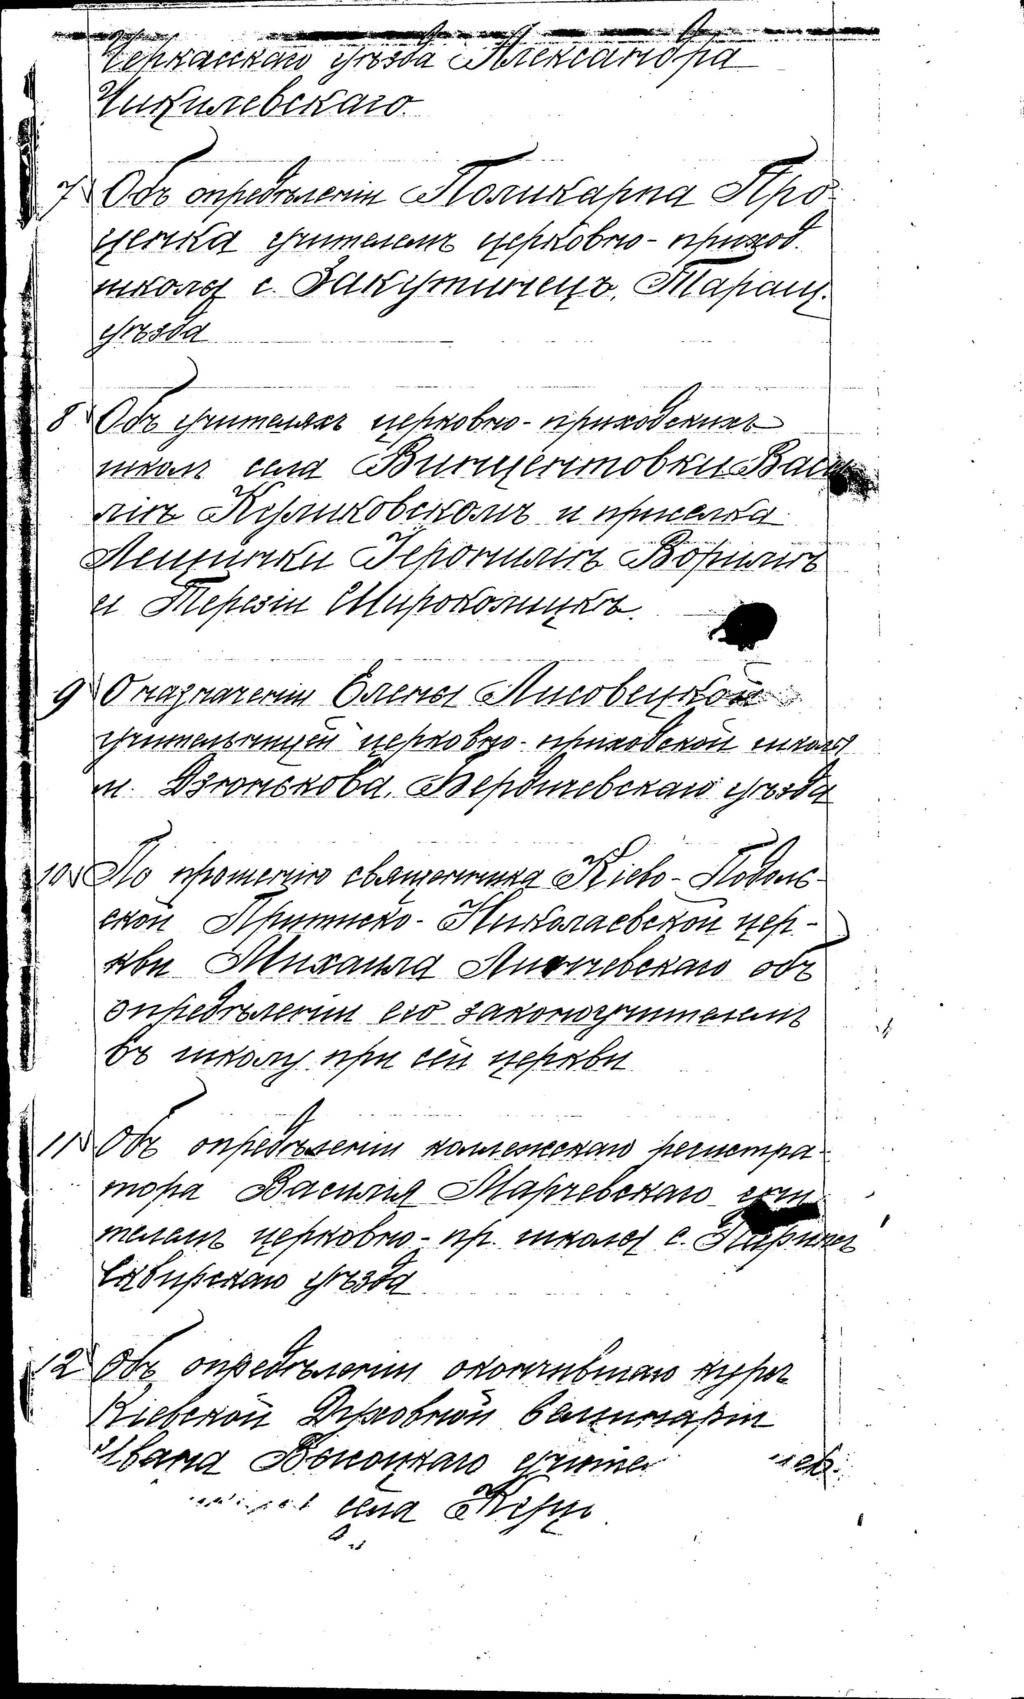 Черкасскаго уѣзда Александра
Чикилевскаго.
7 Объ опредѣленіи Поликарпа Про-
ценка учителемъ церковно-приход.
школы с. Закутинецъ, Таращ.
уѣзда
8 Объ учителяхъ церковно-приходскихъ
школъ села Винцентовки Васи
ліѣ Куликовскомъ и приселка
Лещинки Іеронимѣ
и Терезіи Широколицкѣ.
9 О назначеніи Елены Лисовецкой
учительницей церковно-приходской школы
м. Дзюнькова, Бердичевскаго уѣзда
10 По прошенію священника Кіево-Подоль-
ской Притиско-Николаевской цер-
кви Михаила объ
опредѣленіи его законоучителемъ
въ школу при сей церкви
11 Объ опредѣленіи коллежскаго регистра-
тора Василія Марчевскаго учи
телемъ церковно-пр. школы с.
Сквирскаго уѣзда
12 Объ опредѣленіи окончившаго курсъ
Кіевской Духовной Семинаріи
Ивана Высоцкаго
села